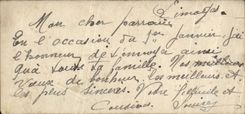 Limoges.
Mon cher parrain
En l'occasion du 1er Janvier j'ai
l'honneur de Limoges ainsi
qu'à toute la famille. Mes meilleurs
Vœux de bonheur les meilleurs et
les plus sincères. Votre
Cousine